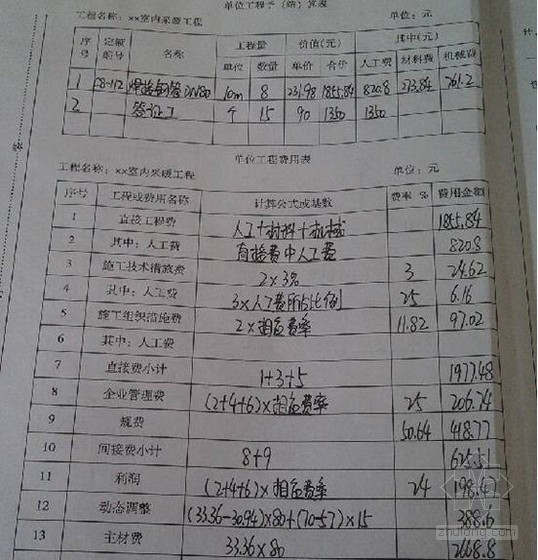 单位工程予（结）算表
工程名称：××室内采暖工程 单位：元
序号 定额编号 名称 工程量 价值(元) 其中(元)
单位 数量 单价 合价 人工费 材料费 机械费
1 C8-112 焊接钢管DN80 10m 8 231.98 1855.84 820.8 273.84 761.2
2 签证工 个 15 90 1350 1350
单位工程费用表
工程名称：××室内采暖工程 单位：元
序号 工程或费用名称 计算公式或基数 费率 % 费用金额
1 直接工程费 人工+材料+机械 1855.84
2 其中：人工费 直接费中人工费 820.8
3 施工技术措施费 2×3% 3 24.62
4 其中：人工费 3×人工费所占比例 25 6.16
5 施工组织措施费 2×相应费率 11.82 97.02
6 其中：人工费
7 直接费小计 1+3+5 1977.48
8 企业管理费 (2+4+6)×相应费率 25 206.74
9 规费 50.64 418.77
10 间接费小计 8+9 625.51
11 利润 (2+4+6)×相应费率 24 198.4
12 动态调整 (33.36-30.94)×80+(70-57)×15 388.6
13 主材费 33.36×80 2668.8
zhulong.com